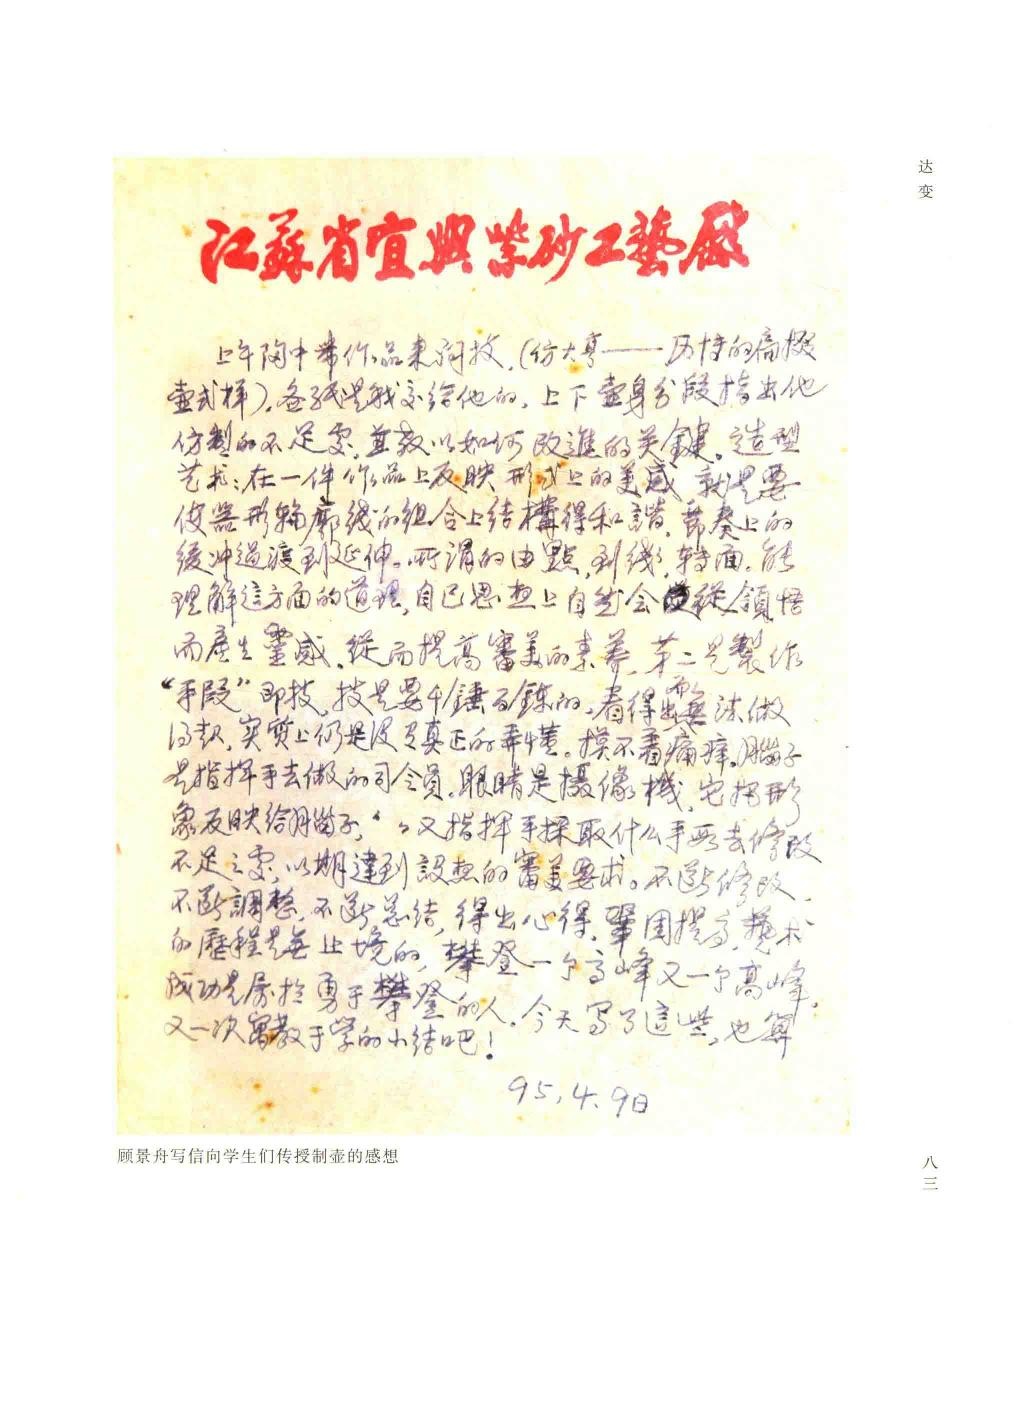 达变
江蘇省宜興紫砂工藝厰
上午陶中带作品来, (仿大亨——历时的高掇
壶式样), 是我交给他的, 上下壶身分段指出他
仿製的不足处, 並教以如何改進的关鍵。造型
艺术: 在一件作品上反映形式上的美感, 就是要
使器形輪廓线的组合上结構得和諧, 節奏上的
缓冲過渡到延伸。所谓的由點, 到线, 转面。能
理解這方面的道理, 自己思想上自然会從領悟
而產生靈感, 從而提高審美的素养, 第二是製作
“手段”即技, 技是要千锤百鍊的, 看得出而無法做
得, 实質上仍是没有真正的弄懂。摸不着痛痒。腦子
是指揮手去做的司令员, 眼睛是摄像機, 它把形
象反映给腦子, 又指揮手採取什么手段去修改
不足之处, 以期達到設想的審美要求。不断修改,
不断調整, 不断总结, 得出心得, 鞏固提高, 藝术
的歷程是無止境的, 攀登一个高峰又一个高峰。
成功是属於勇于攀登的人。今天写了這些, 也算
又一次寓教于学的小结吧!
95.4.9日
顾景舟写信向学生们传授制壶的感想
八三